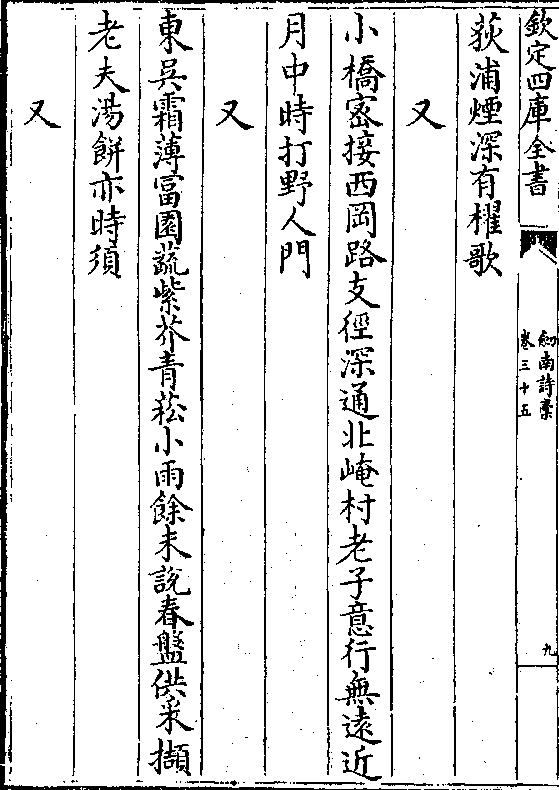 欽定四庫全書
劔南詩藁
卷三十五
九
荻浦煙深有櫂歌
又
小橋宻接西岡路支徑深通北崦村老子意行無遠近
月中時打野人門
又
東吳霜薄富園蔬紫芥青菘小雨餘未說春盤供采擷
老夫湯餅亦時須
又